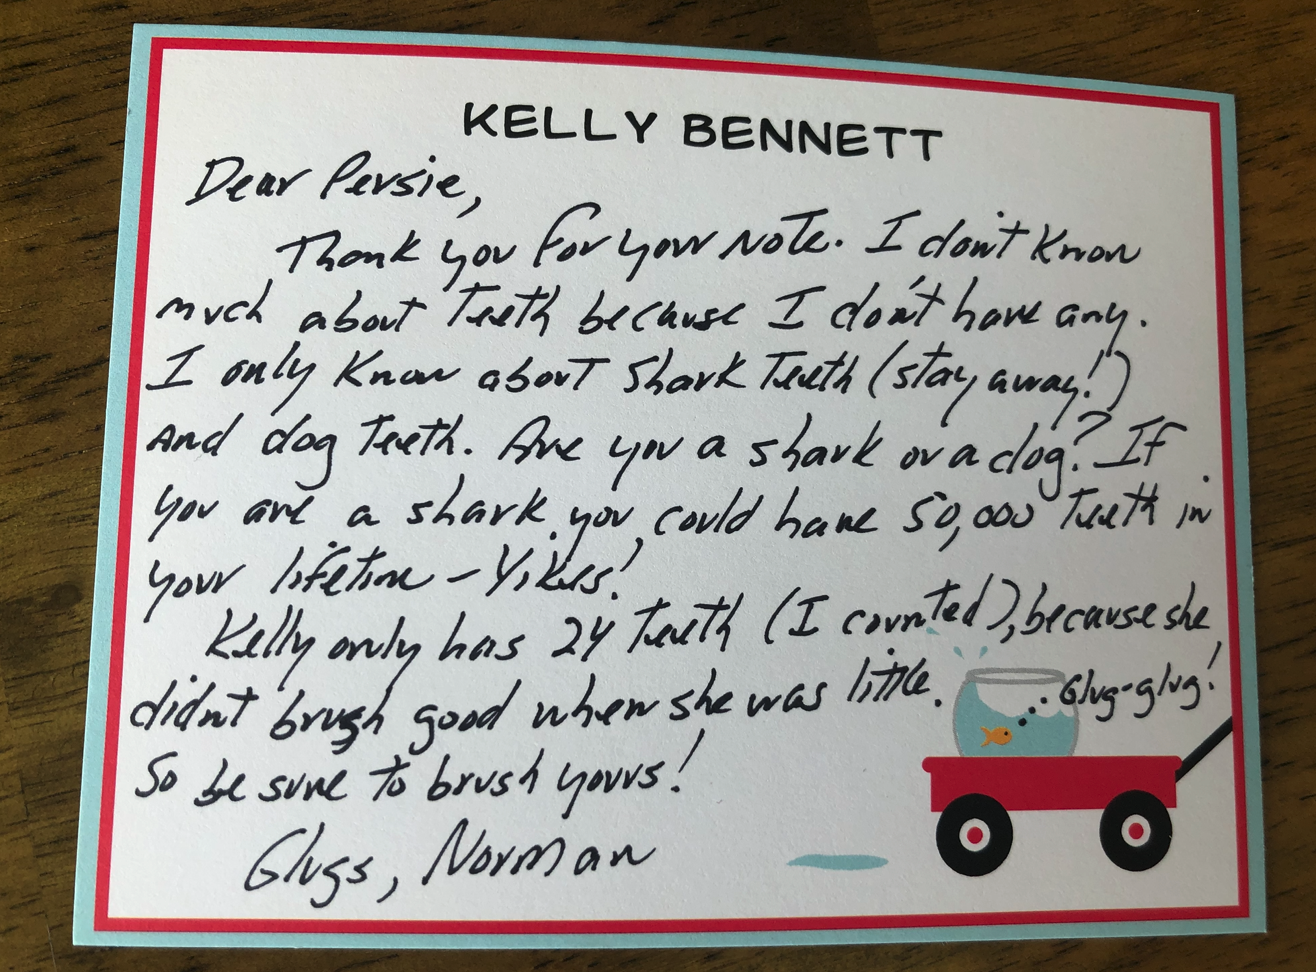 KELLY BENNETT
Dear Persie,
Thank you for your note. I don't know
much about teeth because I don't have any.
I only know about shark teeth (stay away!)
and dog teeth. Are you a shark or a dog? If
you are a shark, you could have 50,000 teeth in
your lifetime - Yikes!
Kelly only has 24 teeth (I counted), because she
didn't brush good when she was little.
Glug-glug!
So be sure to brush yours!
Glugs, Norman